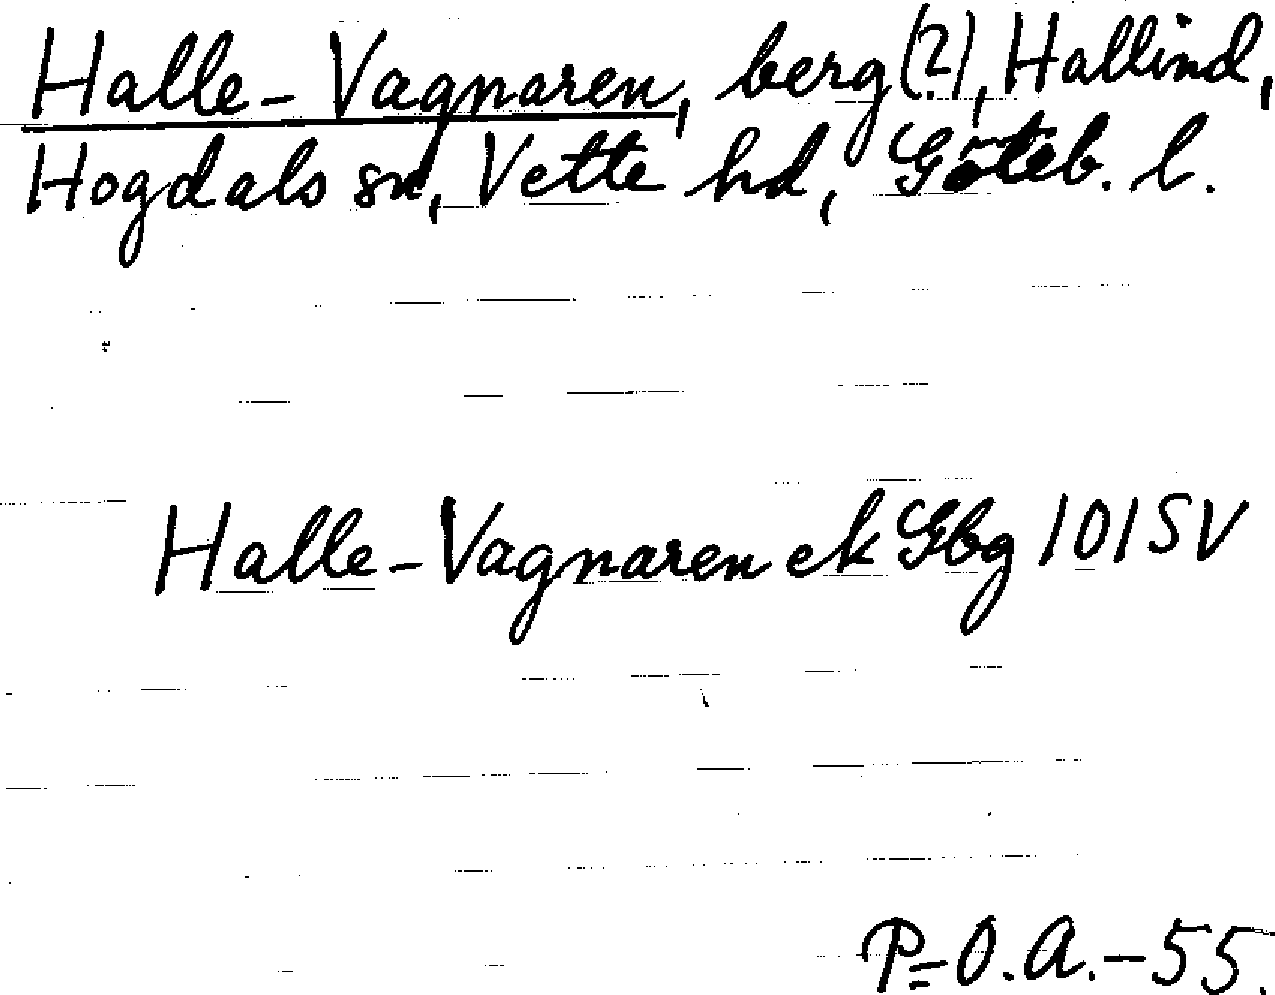 Halle-Vagnaren, berg (?), Hällind,
Hogdals sn, Vette hd, Göteb. l.
Halle-Vagnaren ek Gbg 101 SV
P=O.A.-55.